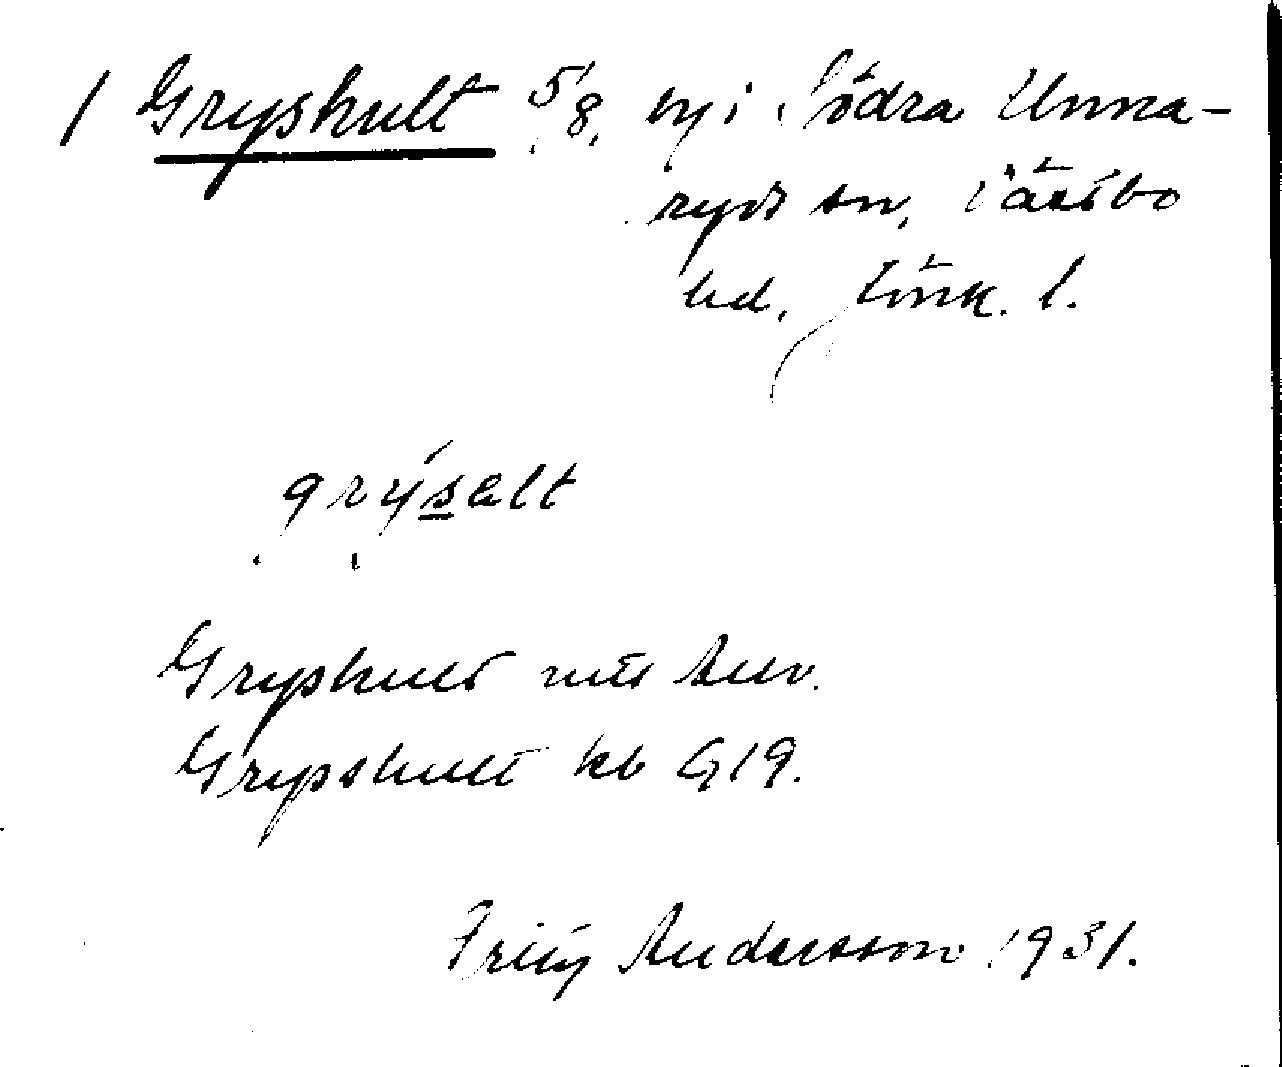 / Gryshult 5/8, by i Södra Unna-
ryds sn, Västbo
hd, Jönk. l.
grýsalt
Gryshult
Gryshult kb G19.
Andersson 1931.